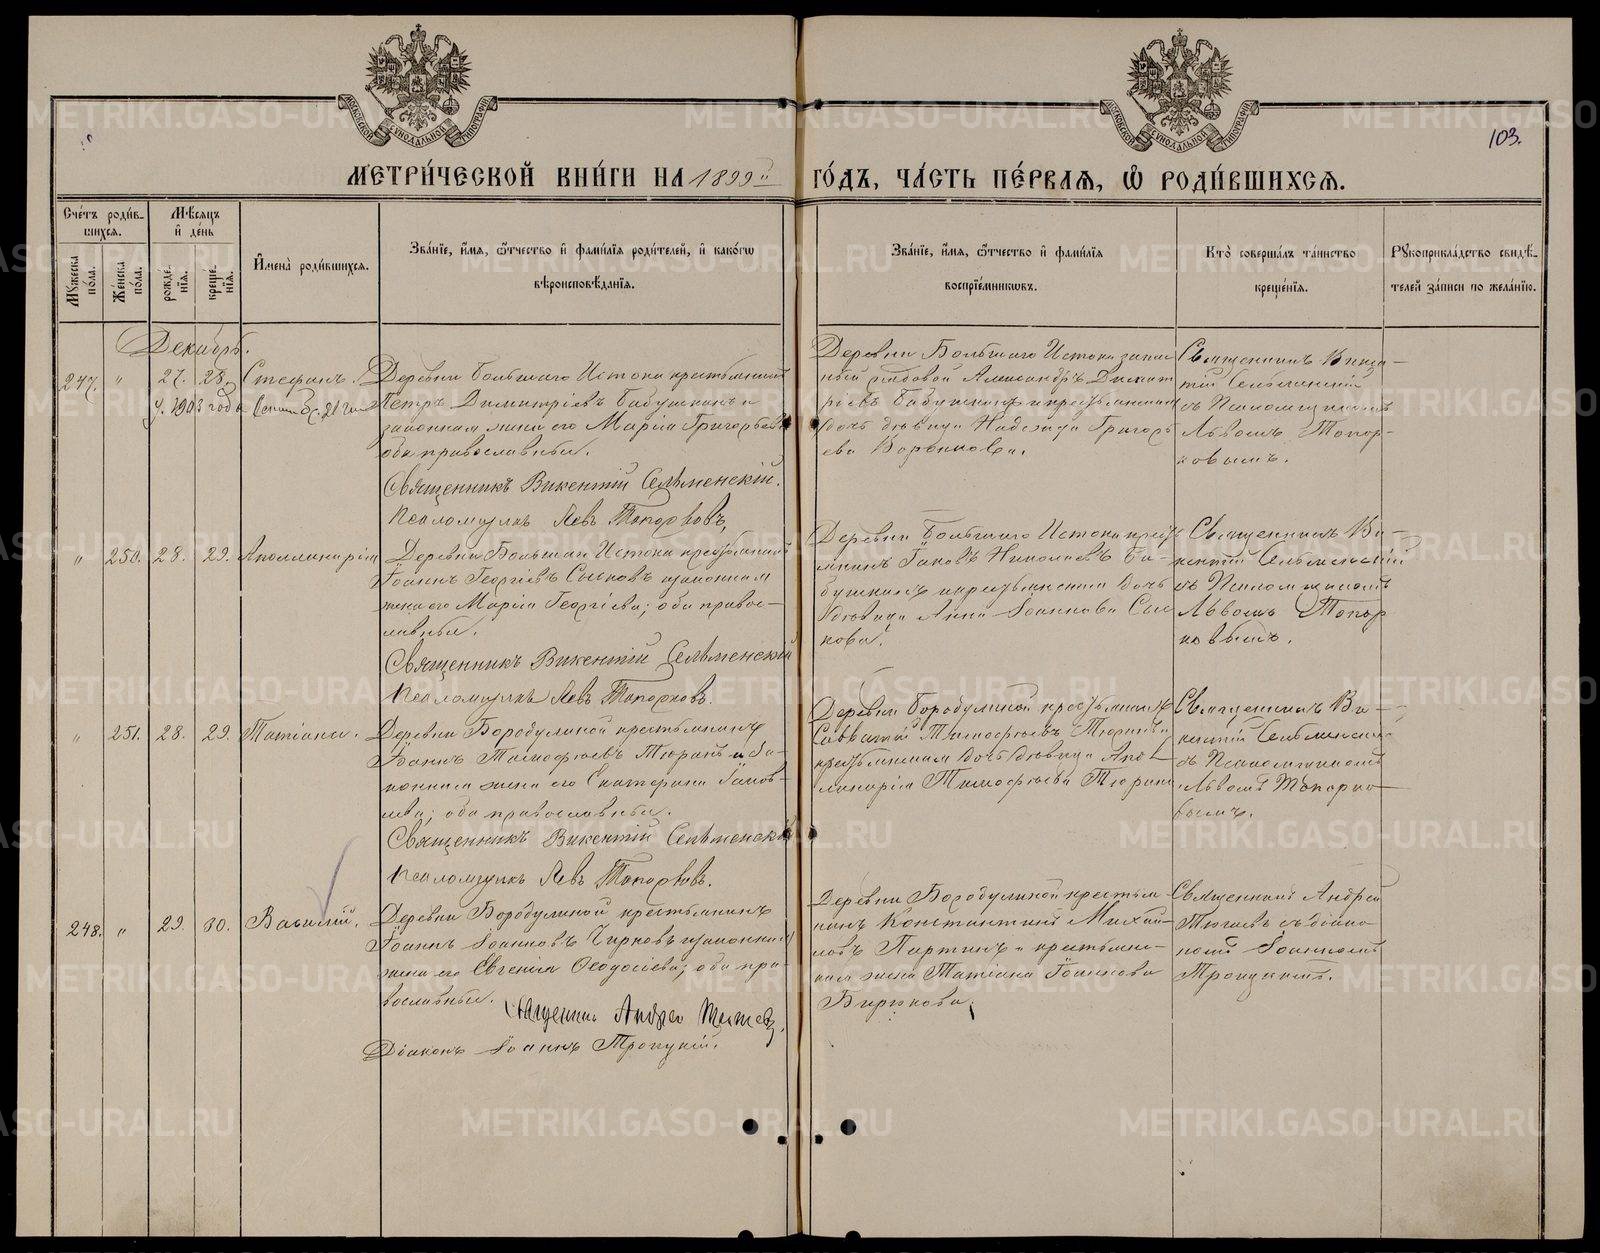 МОСКОВСКОЙ СѴНОДАЛЬНОЙ ТИПОГРАФІИ
МОСКОВСКОЙ СѴНОДАЛЬНОЙ ТИПОГРАФІИ
103.
МЕТРИ́ЧЕСКОЙ КНИ́ГИ НА 1899й ГО́ДЪ, ЧА́СТЬ ПЕ́РВАЯ, Ѡ РОДИ́ВШИХСЯ.
Сче́тъ роди́в-
шихся.
Мꙋжеска по́ла.
Же́нска по́ла.
Мѣ́сяцъ
и҆ де́нь
рожде́-
нїя.
креще́-
нїя.
И҆мена̀ роди́вшихся.
Зва́нїе, и҆́мя, ѻ҆́тчество и҆ фами́лїя роди́телей, и҆ како́гѡ
вѣроисповѣ́данїя.
Зва́нїе, и҆́мя, ѻ҆́тчество и҆ фами́лїя
воспрїе́мникѡвъ.
Кто̀ соверша́лъ та́инство
креще́нїя.
Рꙋкоприкла́дство свидѣ́-
телей за́писи по жела́нїю.
Декабрь.
247. " 27. 28. Стефанъ.
У. 1903 года
Деревни Большаго Истока крестьянинъ
Петръ Димитріевъ Бабушкинъ и
законная жена его Марія Григорьева
оба православные.
Священникъ Викентій Сельменскій.
Псаломщикъ Левъ Топорковъ.
Деревни Большаго Истока запас
ный рядовой Александръ Димит
ріевъ Бабушкинъ и крестьянская
дочь дѣвица Надежда Григорь
ева
Священникъ Викен-
тій Сельменскій
съ Псаломщикомъ
Львомъ Топор-
ковымъ.
" 250. 28. 29. Аполлинарія
Деревни Большаго Истока крестьянинъ
Іоаннъ Георгіевъ Сысковъ и законная
жена его Марія Георгіева; оба право-
славные.
Священникъ Викентій Сельменскій
Псаломщикъ Левъ Топорковъ.
Деревни Большаго Истока крестья
нинъ Іаковъ Николаевъ Ба-
бушкинъ и крестьянская дочь
дѣвица Анна Іоаннова Сыс
кова.
Священникъ Ви-
кентій Сельменскій
съ Псаломщикомъ
Львомъ Топор
ковымъ.
" 251. 28. 29. Татіана.
Деревни Бородулиной крестьянинъ
Іоаннъ Тимофеевъ Тюринъ и за-
конная жена его Екатерина Іаков-
лева; оба православные.
Священникъ Викентій Сельменскій
Псаломщикъ Левъ Топорковъ.
Деревни Бородулиной крестьянинъ
Савватій Тимофеевъ Тюринъ и
крестьянская дочь дѣвица Апол-
линарія Тимофеева Тюрина
Священникъ Ви-
кентій Сельменскій
съ Псаломщикомъ
Львомъ Топорко-
вымъ.
248. " 29. 30. Василій.
Деревни Бородулиной крестьянинъ
Іоаннъ Іоанновъ Чирковъ и законная
жена его Евгенія Ѳеодосіева; оба пра-
вославные.
Священникъ Андрей
Діаконъ Іоаннъ Троицкій.
Деревни Бородулиной крестья
нинъ Константинъ Михай-
ловъ Паргинъ и крестьянс-
кая жена Татіана
Священникъ Андрей
съ діако-
номъ Іоанномъ
Троицкимъ.
METRIKI.GASO-URAL.RU